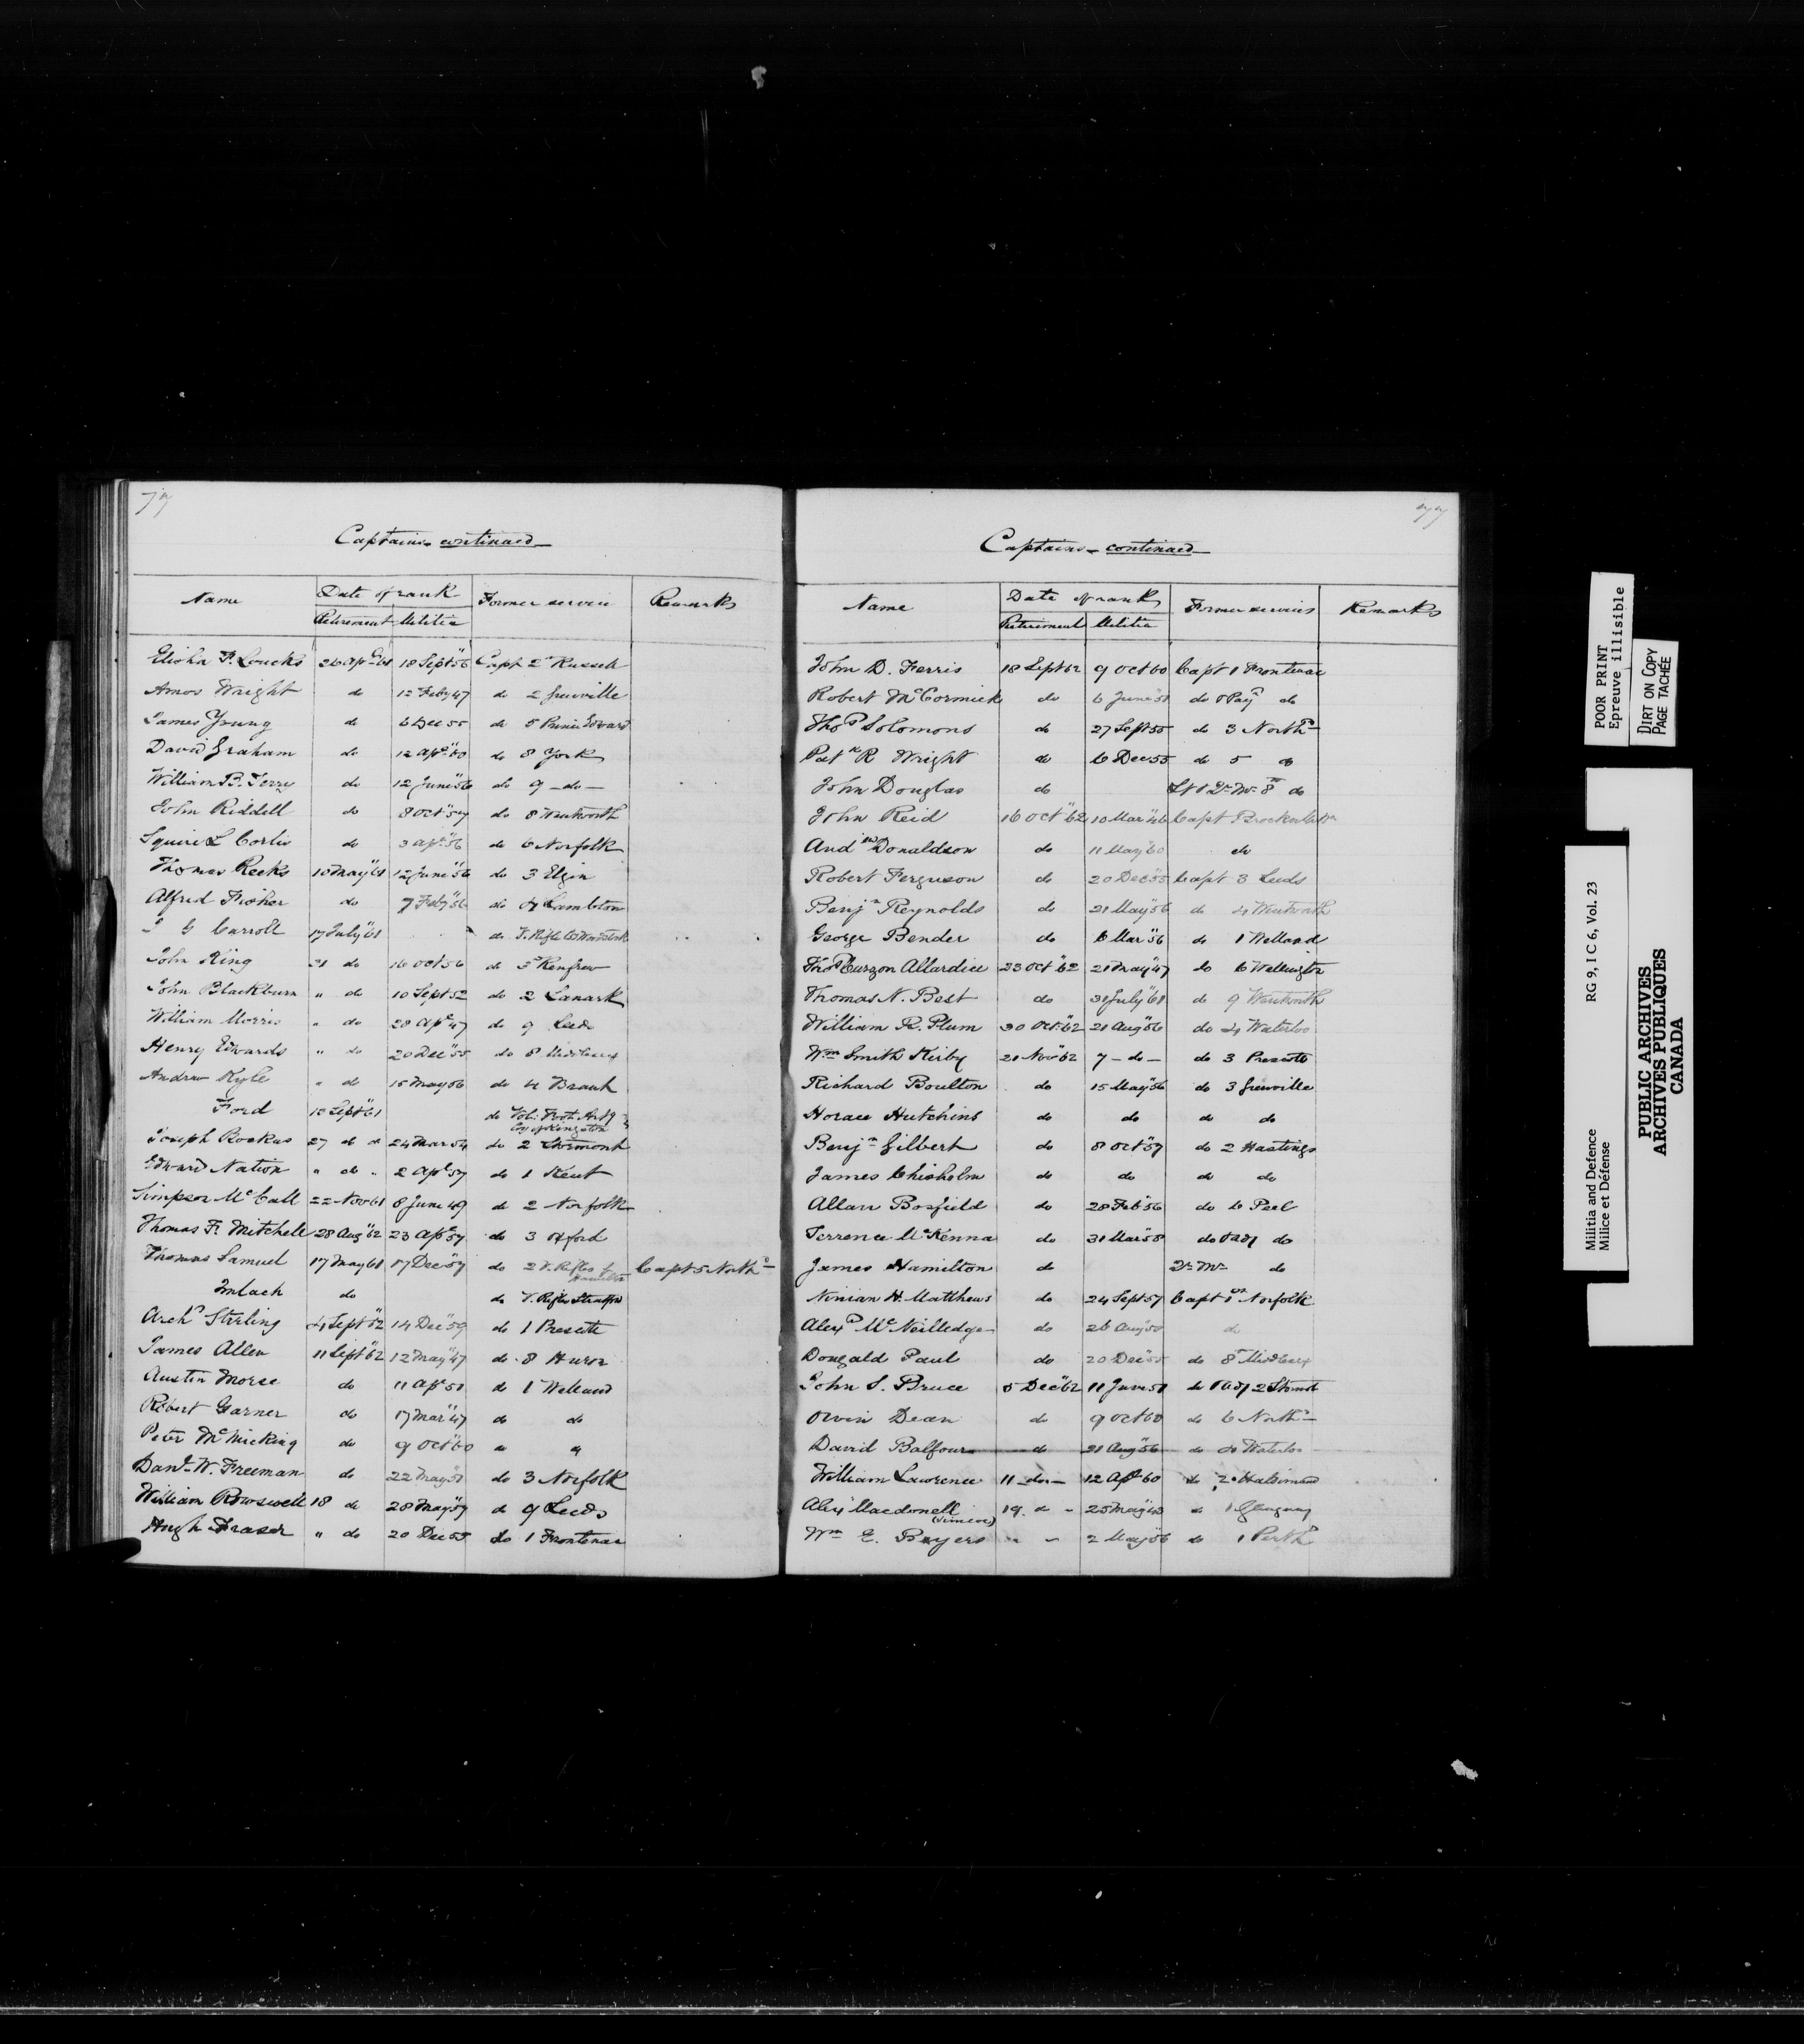 77
Captains continued
Name Date of rank Former service Remarks
Retirement Militia
Elisha F. Loucks 26 Apl 61 18 Sept 56 Capt 2 Russell
Amos Wright do 12 Feby 47 do 2 Grenville
James Young do 6 Dec 55 do 5 Prince Edward
David Graham do 12 Apl 60 do 8 York
William B. Terry do 12 June 56 do 9 - do -
John Riddell do 8 Oct 57 do 8 Wentworth
Squire L do 3 Apl 56 do 6 Norfolk
Thomas Reeks 10 May 61 12 June 56 do 3 Elgin
Alfred Fisher do 7 Feby 56 do 4 Lambton
Carroll 17 July 61 do V. Rifle Co Woodstock
John King 31 do 16 Oct 56 do 3 Renfrew
John Blackburn " do 10 Sept 52 do 2 Lanark
William Morris " do 28 Apl 47 do 9 Leeds
Henry Edwards " do 20 Dec 55 do 8 Middlesex
Andrew Kyle " do 15 May 56 do 4 Branh
Ford 12 Sept 61 do Vol. Foot Arty Coy of Kingston
Joseph Rockus 27 do 24 Mar 54 do 2 Stormont
Edward Nation " do " 2 Apl 57 do 1 Kent
Simpson McCall 22 Nov 61 8 June 49 do 2 Norfolk
Thomas F. Mitchell 28 Aug 62 23 Apl 57 do 3 Oxford
Thomas Samuel 17 May 61 17 Dec 57 do 2 V. Rifles of Hamilton Capt 5 North
Imlach do do V. Rifles Stratford
Archd Stirling 4 Sept 62 14 Dec 59 do 1 Prescott
James Allen 11 Sept 62 12 May 47 do 8 Huron
Austin Morse do 11 Apl 51 do 1 Welland
Robert Garner do 17 Mar 47 do do
Peter McMicking do 9 Oct 60
Danl W. Freeman do 22 May 51 do 3 Norfolk
William Rowswell 18 do 28 May 59 do 9 Leeds
Hugh Fraser " do 20 Dec 55 do 1 Frontenac
77
Captains - continued
Name Date of rank Former services Remarks
Retirement Militia
John D. Ferris 18 Sept 62 9 Oct 60 Capt 1 Frontenac
Robert McCormick do 6 June 51 do & Pay do
Thos Solomons do 27 Sept 55 do 3 North
Patk R Wright do 6 Dec 55 do 5 do
John Douglas do 8 do
John Reid 16 Oct 62 10 Mar 46 Capt
Andw Donaldson do 11 May 60 do
Robert Ferguson do 20 Dec 55 Capt 3 Leeds
Benjn Reynolds do 21 May 56 do 4 Wentworth
George Bender do 6 Mar 56 do 1 Welland
Thos Curzon Allardice 23 Oct 62 21 May 47 do 6 Wellington
Thomas N. Best do 31 July 61 do 9 Wentworth
William R. Plum 30 Oct 62 21 Aug 56 do 4 Waterloo
Wm Smith Kirby 21 Nov 62 7 - do - do 3 Prescott
Richard Boulton do 15 May 56 do 3 Grenville
Horace Hutchins do do do do
Benjn Gilbert do 8 Oct 57 do 2 Hastings
James Chisholm do do do do
Allan Bosfield do 28 Feb 56 do 6 Peel
Terrence McKenna do 31 Mar 58 do & Adj do
James Hamilton do Qr Mr do
Ninian H. Matthews do 24 Sept 57 Capt 1st Norfolk
Alexr McNeilledge do 26 Aug 50 do
Dougald Paul do 20 Dec 55 do 8 Middlesex
John S. Bruce 5 Dec 62 11 June 51 do & Adj 2 Stormt
Orvin Dean do 9 Oct 60 do 6 North
David Balfour do 21 Aug 56 do 4 Waterloo
William Lawrence 11 - do - 12 Apl 60 do 2 Haldimand
Alexr Macdonell (Simcoe) 19 do - 25 May 43 do 1 Glengarry
Wm E. Byers " - 2 May 56 do 1 Perth
POOR PRINT
Epreuve illisible
DIRT ON COPY
PAGE TACHÉE
Militia and Defence
Milice et Défense
RG 9, I C 6, Vol. 23
PUBLIC ARCHIVES
ARCHIVES PUBLIQUES
CANADA